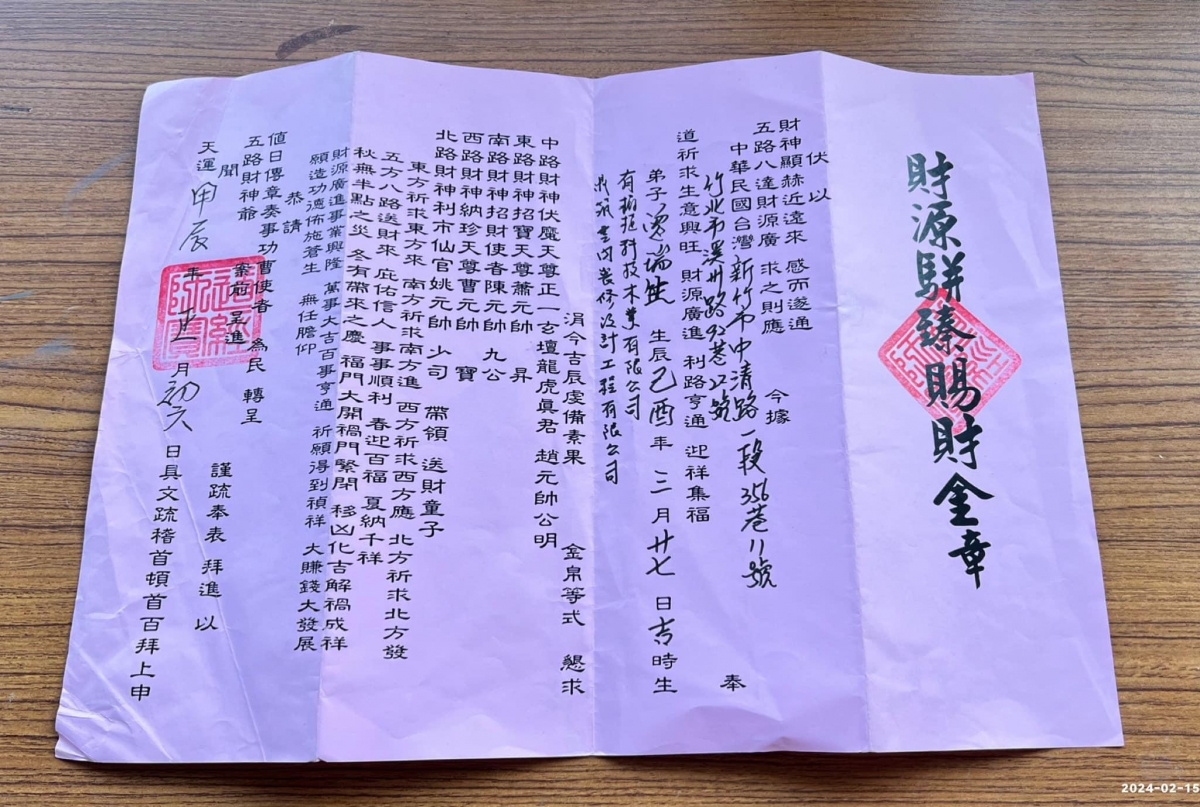 財源駢臻賜財金章
伏以
財神顯赫近遠來 感而遂通
五路八達財源廣 求之則應 今據
中華民國台灣新竹市中清路一段356巷11號
竹北市溪州路92巷22號 奉
道祈求生意興旺 財源廣進 利路亨通 迎祥集福
弟子 瑞 生辰己酉年三月廿七日吉時生
有 科技木業有限公司
室內裝修設計工程有限公司
涓今吉辰虔備素果 金帛等式 懇求
中路財神伏魔天尊正一玄壇龍虎眞君 趙元帥公明
東路財神招寶天尊蕭元帥 昇
南路財神招財使者陳元帥 九公
西路財神納珍天尊曹元帥 寶
北路財神利市仙官姚元帥 少司 帶領 送財童子
東方祈求東方來 南方祈求南方進 西方祈求西方應 北方祈求北方發
五方八路送財來 庇佑信人 事事順利 春迎百福 夏納千祥
秋無半點之災 冬有帶來之慶 福門大開禍門緊閉 移凶化吉解禍成祥
財源廣進事業興隆 萬事大吉百事亨通 祈願得到禎祥 大賺錢大發展
願造功德佈施蒼生 無任膽仰
恭請
值日傳章奏事功曹使者 為民 轉呈
五路財神爺 案前呈進 謹疏奉表 拜進 以
聞
天運甲辰年正月初六日具文疏稽首頓首百拜上申
2024-02-15